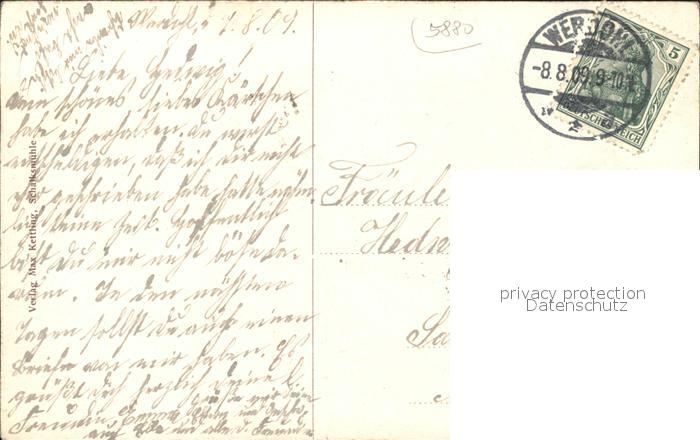 Werdohl, 7.8.09.
Liebe Hedwig!
Dein schönes liebes Kärtchen
habe ich erhalten. Du wirst
entschuldigen, daß ich dir nicht
eher geschrieben habe, hatte näm-
lich keine Zeit. Hoffentlich
bist du mir nicht böse da-
rum. In den nächsten
Tagen sollst du auch einen
Brief von mir haben. Es
grüßt dich herzlich deine
Freundin Emma
Verlag Max Kettling, Schalksmühle
5880
WERDOHL
-8.8.09.9-10
5
DEUTSCHES REICH
Fräule
Hedw
Sa
privacy protection
Datenschutz